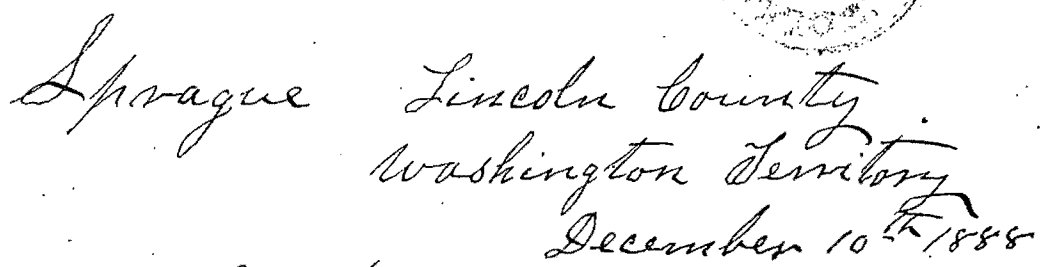 Sprague Lincoln County
Washington Territory
December 10th 1888